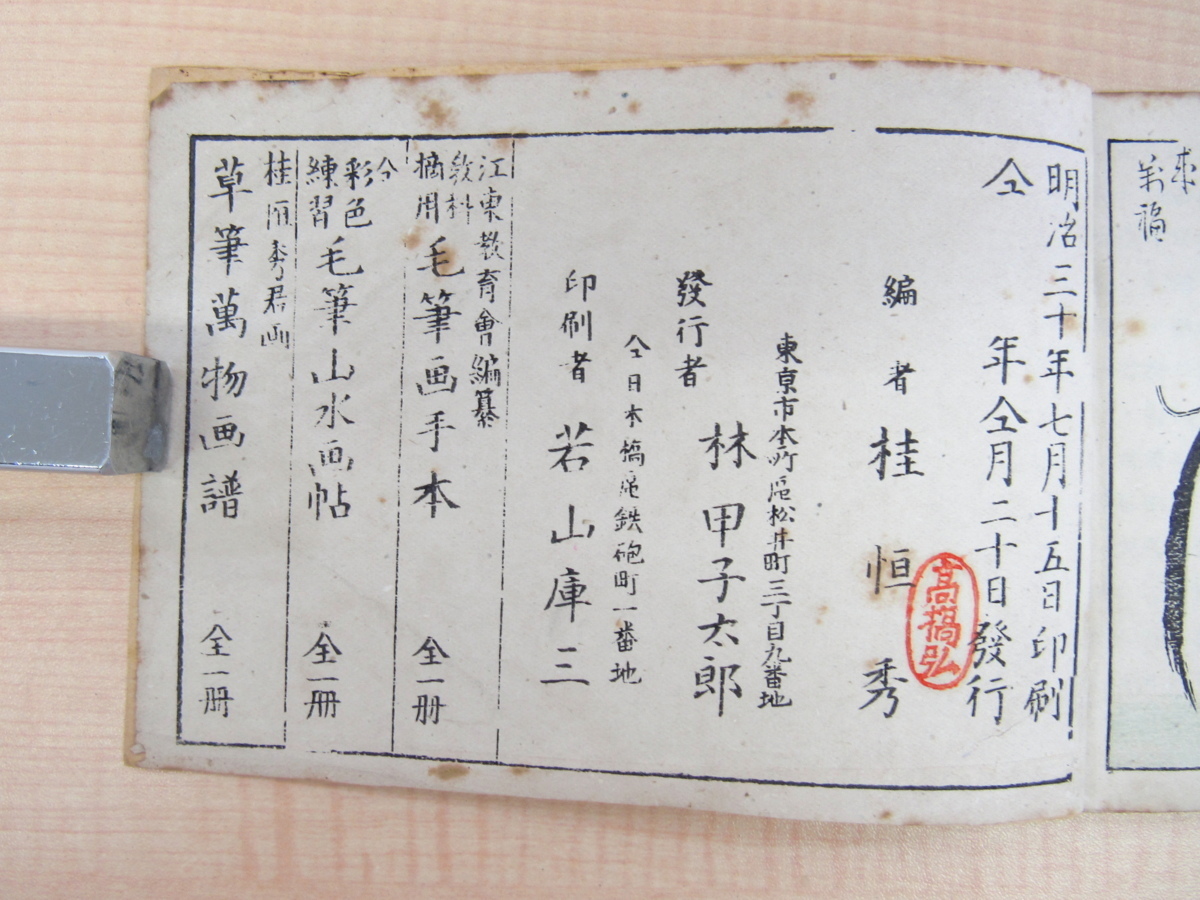 明治三十年七月十五日印刷
仝年仝月二十日發行
編者 桂恒秀
髙橋弘
東京市本所區松井町三丁目九番地
發行者 林甲子太郎
仝日本橋區鉄砲町一番地
印刷者 若山庫三
江東教育會編纂
教科摘用 毛筆画手本 全一册
仝
彩色練習 毛筆山水画帖 全一册
桂恒秀君画
草筆萬物画譜 全一册